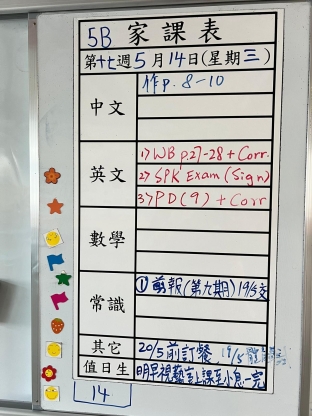 5B 家課表
第十七週5月14日(星期三)
中文
作p. 8-10
英文
1) WB p.27-28 + Corr.
2) SPK Exam (Sign)
3) PD (9) + Corr
數學
常識
① 剪報(第九期) 19/5交
其它
20/5前訂餐 19/5
值日生
明早視藝言上課至小息一完
14